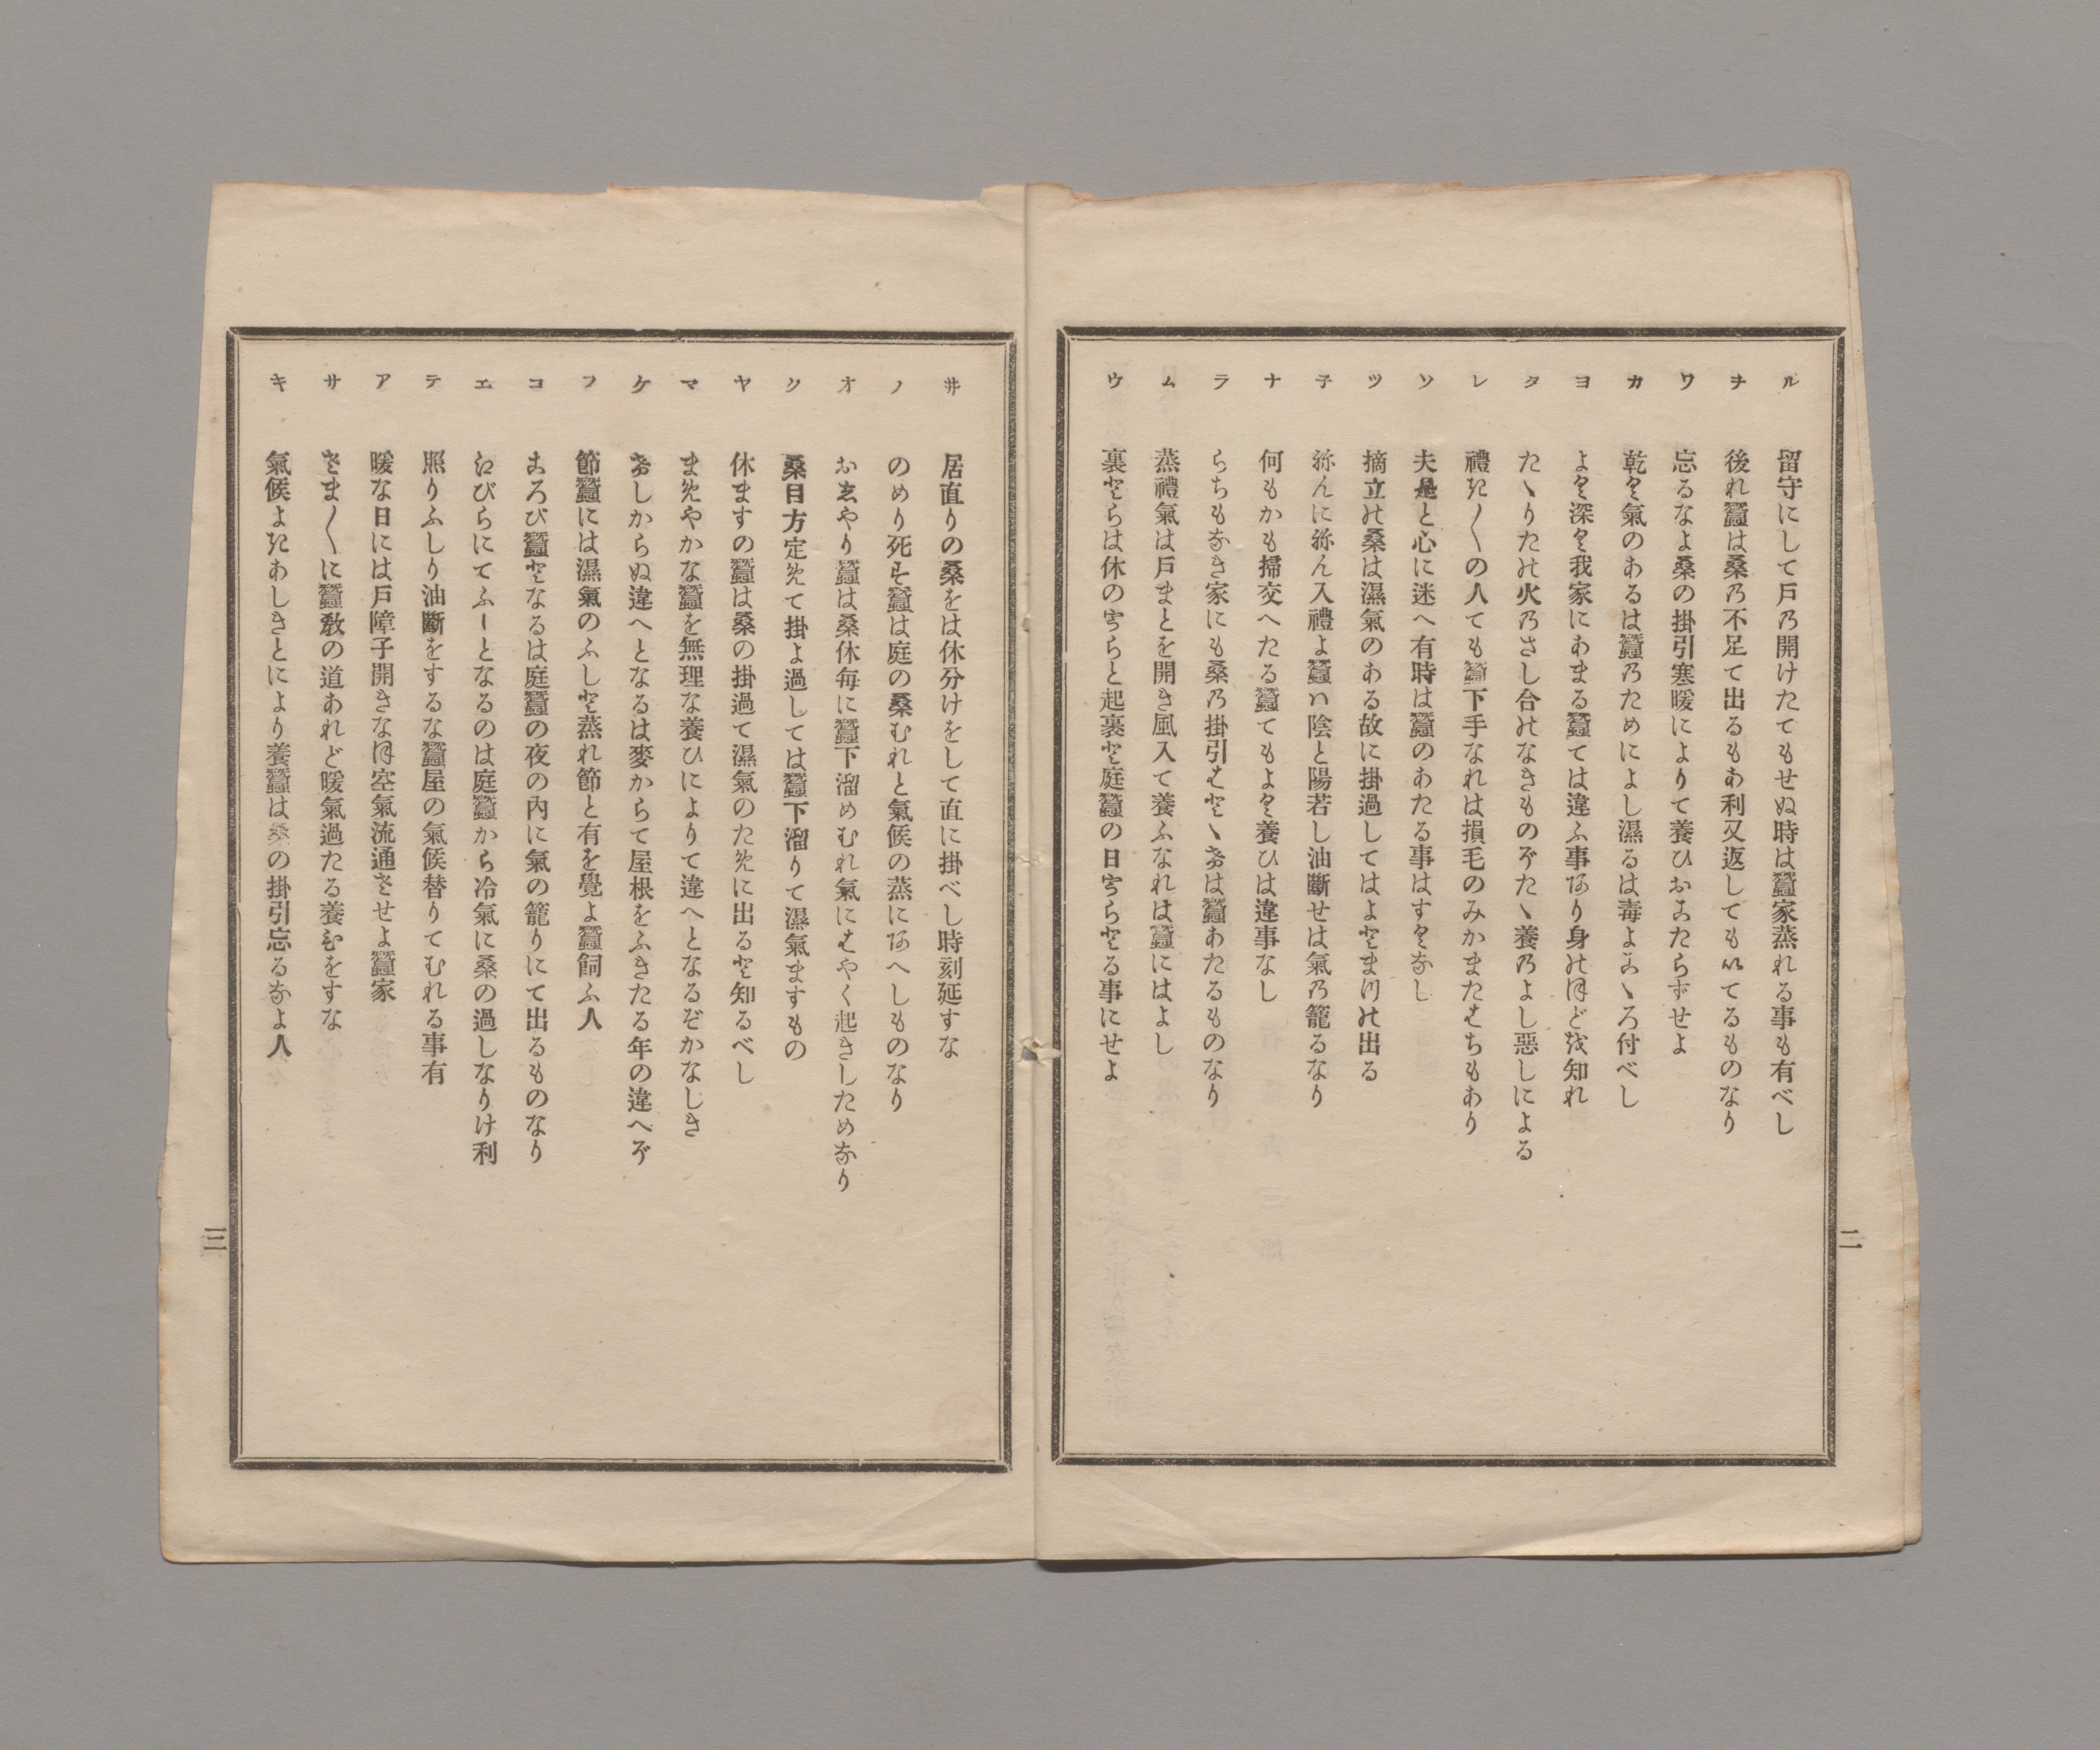 ル 留守にして戸乃開けたてもせぬ時は蠶家蒸れる事も有べし
ヲ 後れ蠶は桑乃不足て出るもあ利又返しても以てるものなり
ワ 忘るなよ桑の掛引寒暖によりて養ひおこたらずせよ
カ 乾く氣のあるは蠶乃ためによし濕るは毒よこゝろ付べし
ヨ よく深く我家にあまる蠶ては違ふ事あり身のほどを知れ
タ たゝりたの火乃さし合のなきものぞたゝ養乃よし惡しによる
レ 禮き〳〵の人ても蠶下手なれは損毛のみかまたはちもあり
ソ 夫是と心に迷へ有時は蠶のあたる事はすくなし
ツ 摘立の桑は濕氣のある故に掛過してはよどまりの出る
子 祢んに祢ん入禮よ蠶ハ陰と陽若し油斷せは氣乃籠るなり
ナ 何もかも掃交へたる蠶てもよく養ひは違事なし
ラ らちもなき家にも桑乃掛引はとゝなは蠶あたるものなり
ム 蒸禮氣は戸まとを開き風入て養ふなれは蠶にはよし
ウ 裏とらは休のうらと起裏と庭蠶の日うらとる事にせよ
二
井 居直りの桑をは休分けをして直に掛べし時刻延すな
ノ のめり死す蠶は庭の桑むれと氣候の蒸にあへしものなり
オ おゑやり蠶は桑休毎に蠶下溜めむれ氣にはやく起きしためなり
ク 桑目方定めて掛よ過しては蠶下溜りて濕氣ますもの
ヤ 休ますの蠶は桑の掛過て濕氣のために出ると知るべし
マ まめやかな蠶を無理な養ひによりて違へとなるぞかなしき
ケ けしからぬ違へとなるは麥からて屋根をふきたる年の違へぞ
フ 節蠶には濕氣のふしと蒸れ節と有を覺よ蠶飼ふ人
コ ころび蠶となるは庭蠶の夜の内に氣の籠りにて出るものなり
エ えびらにてふーとなるのは庭蠶から冷氣に桑の過しなりけ利
テ 照りふしり油斷をするな蠶屋の氣候替りてむれる事有
ア 暖な日には戸障子開きなほ空氣流通させよ蠶家
サ さま〳〵に蠶敎の道あれど暖氣過たる養ひをすな
キ 氣候よきあしきとにより養蠶は桑の掛引忘るなよ人
三